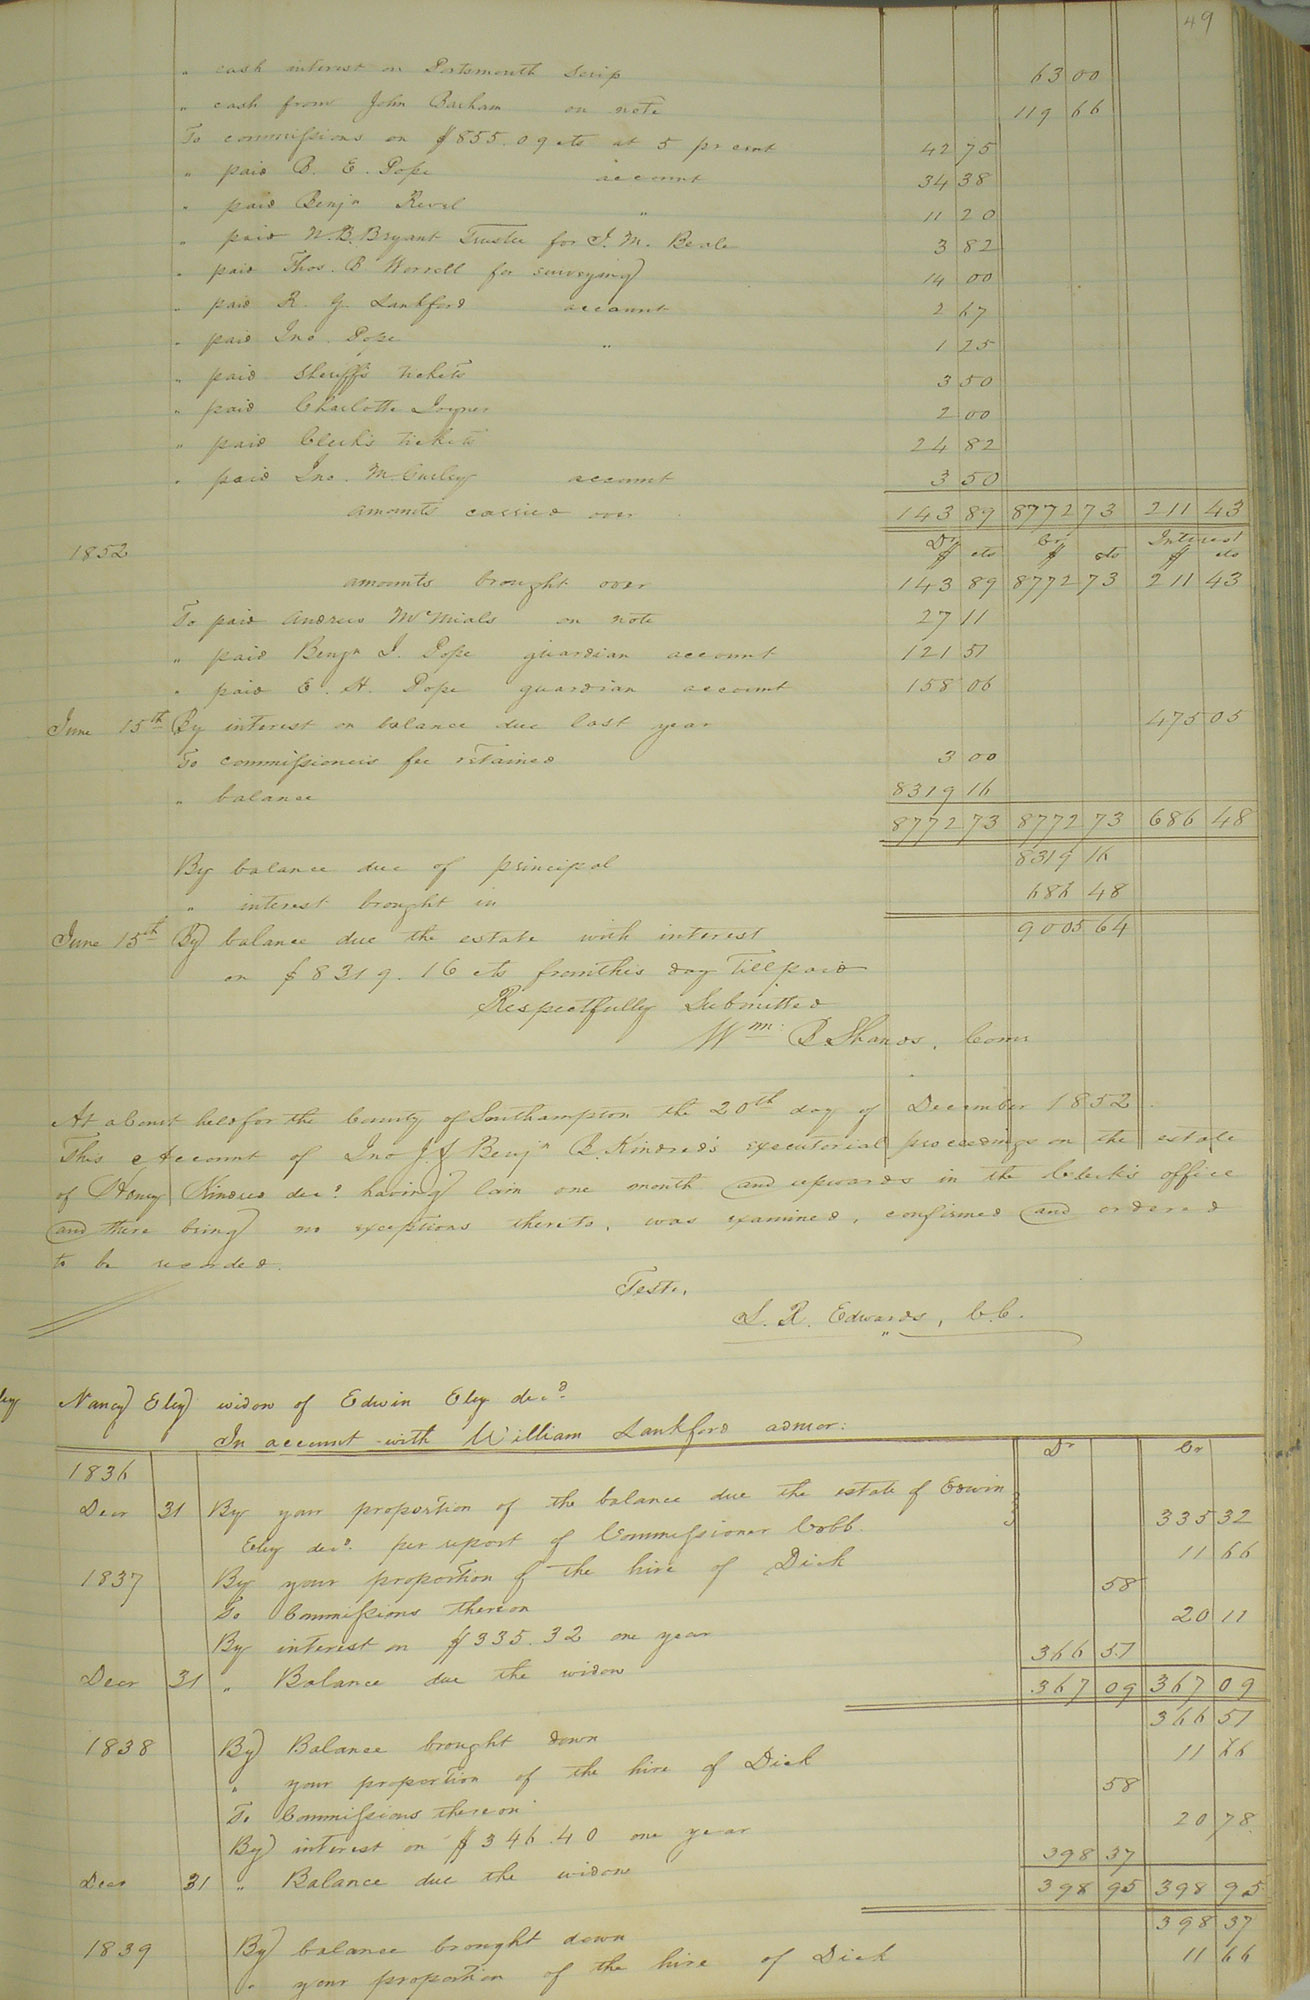 49
" cash interest on Portsmouth Scrip 63 00
" cash from John Barham on note 119 66
To commissions on $855.09 cts at 5 pr cent 42 75
" paid B. E. Pope account 34 38
" paid Benjn Revel " 11 20
" paid N. B. Bryant Trustee for J. M. Beale 3 82
" paid Thos. B Worrell for surveying 14 00
" paid R. G. Lankford account 2 67
" paid Jno. Pope " 1 25
" paid Sheriff's tickets 3 50
" paid Charlotte Joyner 2 00
" paid Clerk's tickets 24 82
" paid Jno. M. Gurley account 3 50
amounts carried over 143 89 8772 73 211 43
1852 Dr $ cts Cr $ cts Interest $ cts
amounts brought over 143 89 8772 73 211 43
To paid Andrew McMials on note 27 11
" paid Benjn J. Pope guardian account 121 51
" paid E. H. Pope guardian account 158 06
June 15th By interest on balance due last year 475 05
To commissioners fee retained 3 00
" balance 8319 16
8772 73 8772 73 686 48
By balance due of principal 8319 16
" interest brought in 686 48
June 15th By balance due the estate with interest 9005 64
on $8319.16 cts from this day till paid
Respectfully Submitted
Wm. B. Shands, Comr
At a Court held for the County of Southampton the 20th day of December 1852.
This account of Jno J. & Benjn B. Kindred's executorial proceedings on the estate
of Henry Kindred decd. having lain one month and upwards in the Clerk's office
and there being no exceptions thereto, was examined, confirmed and ordered
to be recorded.
Teste,
L. R. Edwards, C.C.
ley Nancy Eley widow of Edwin Eley decd.
In account with William Lankford admor:
1836 Dr Cr
Decr 31 By your proportion of the balance due the estate of Edwin
Eley decd. per report of Commissioner Cobb. 335 32
1837 By your proportion of the hire of Dick 11 66
To Commissions thereon 58
By interest on $335.32 one year 20 11
Decr 31 " Balance due the widow 366 51
367 09 367 09
1838 By Balance brought down 366 51
" your proportion of the hire of Dick 11 66
To Commissions thereon 58
By interest on $346.40 one year 20 78
Decr 31 " Balance due the widow 398 37
398 95 398 95
1839 By balance brought down 398 37
" your proportion of the hire of Dick 11 66